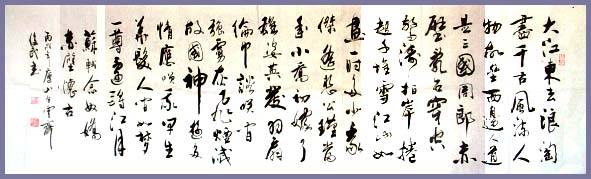 大江東去浪淘
盡千古風流人
物故壘西邊人道
是三國周郎赤
壁亂石穿空
驚濤拍岸捲
起千堆雪江山如
畫一時多少豪
傑遙想公瑾當
年小喬初嫁了
雄姿英發羽扇
綸巾談笑間
強虜灰飛煙滅
故國神遊多
情應笑我早生
華髮人間如夢
一尊還酹江月
蘇軾念奴嬌
赤壁懷古